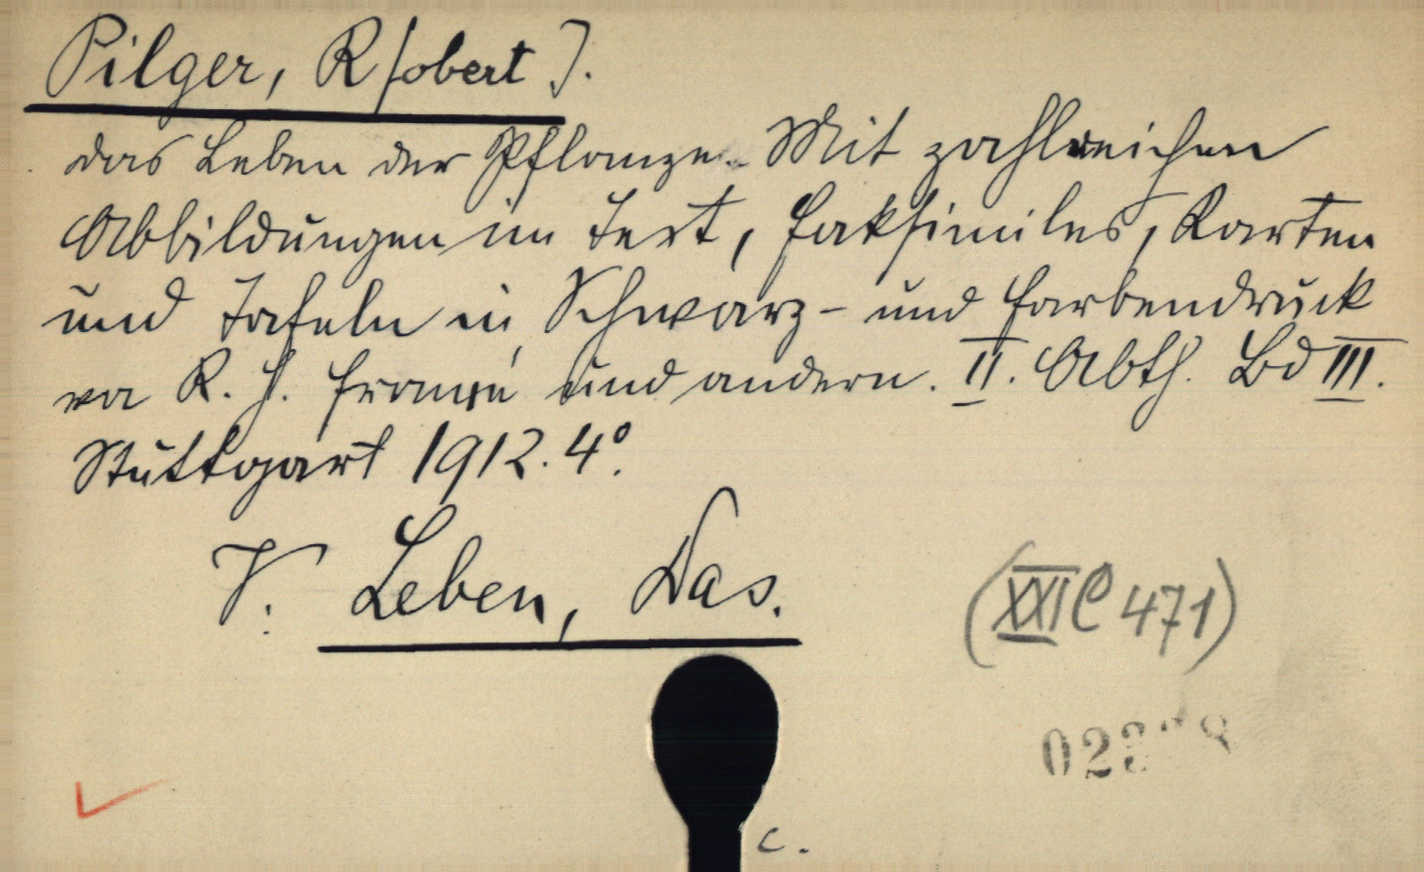 Pilger, R[obert].
das Leben der Pflanze. Mit zahlreichen
Abbildungen im Text, Faksimiles, Karten
und Tafeln in Schwarz- und Farbendruck
von R. H. Francé und andern. II. Abth. Bd III.
Stuttgart 1912. 4°.
V. Leben, Das.
(XXI C 471)
c.